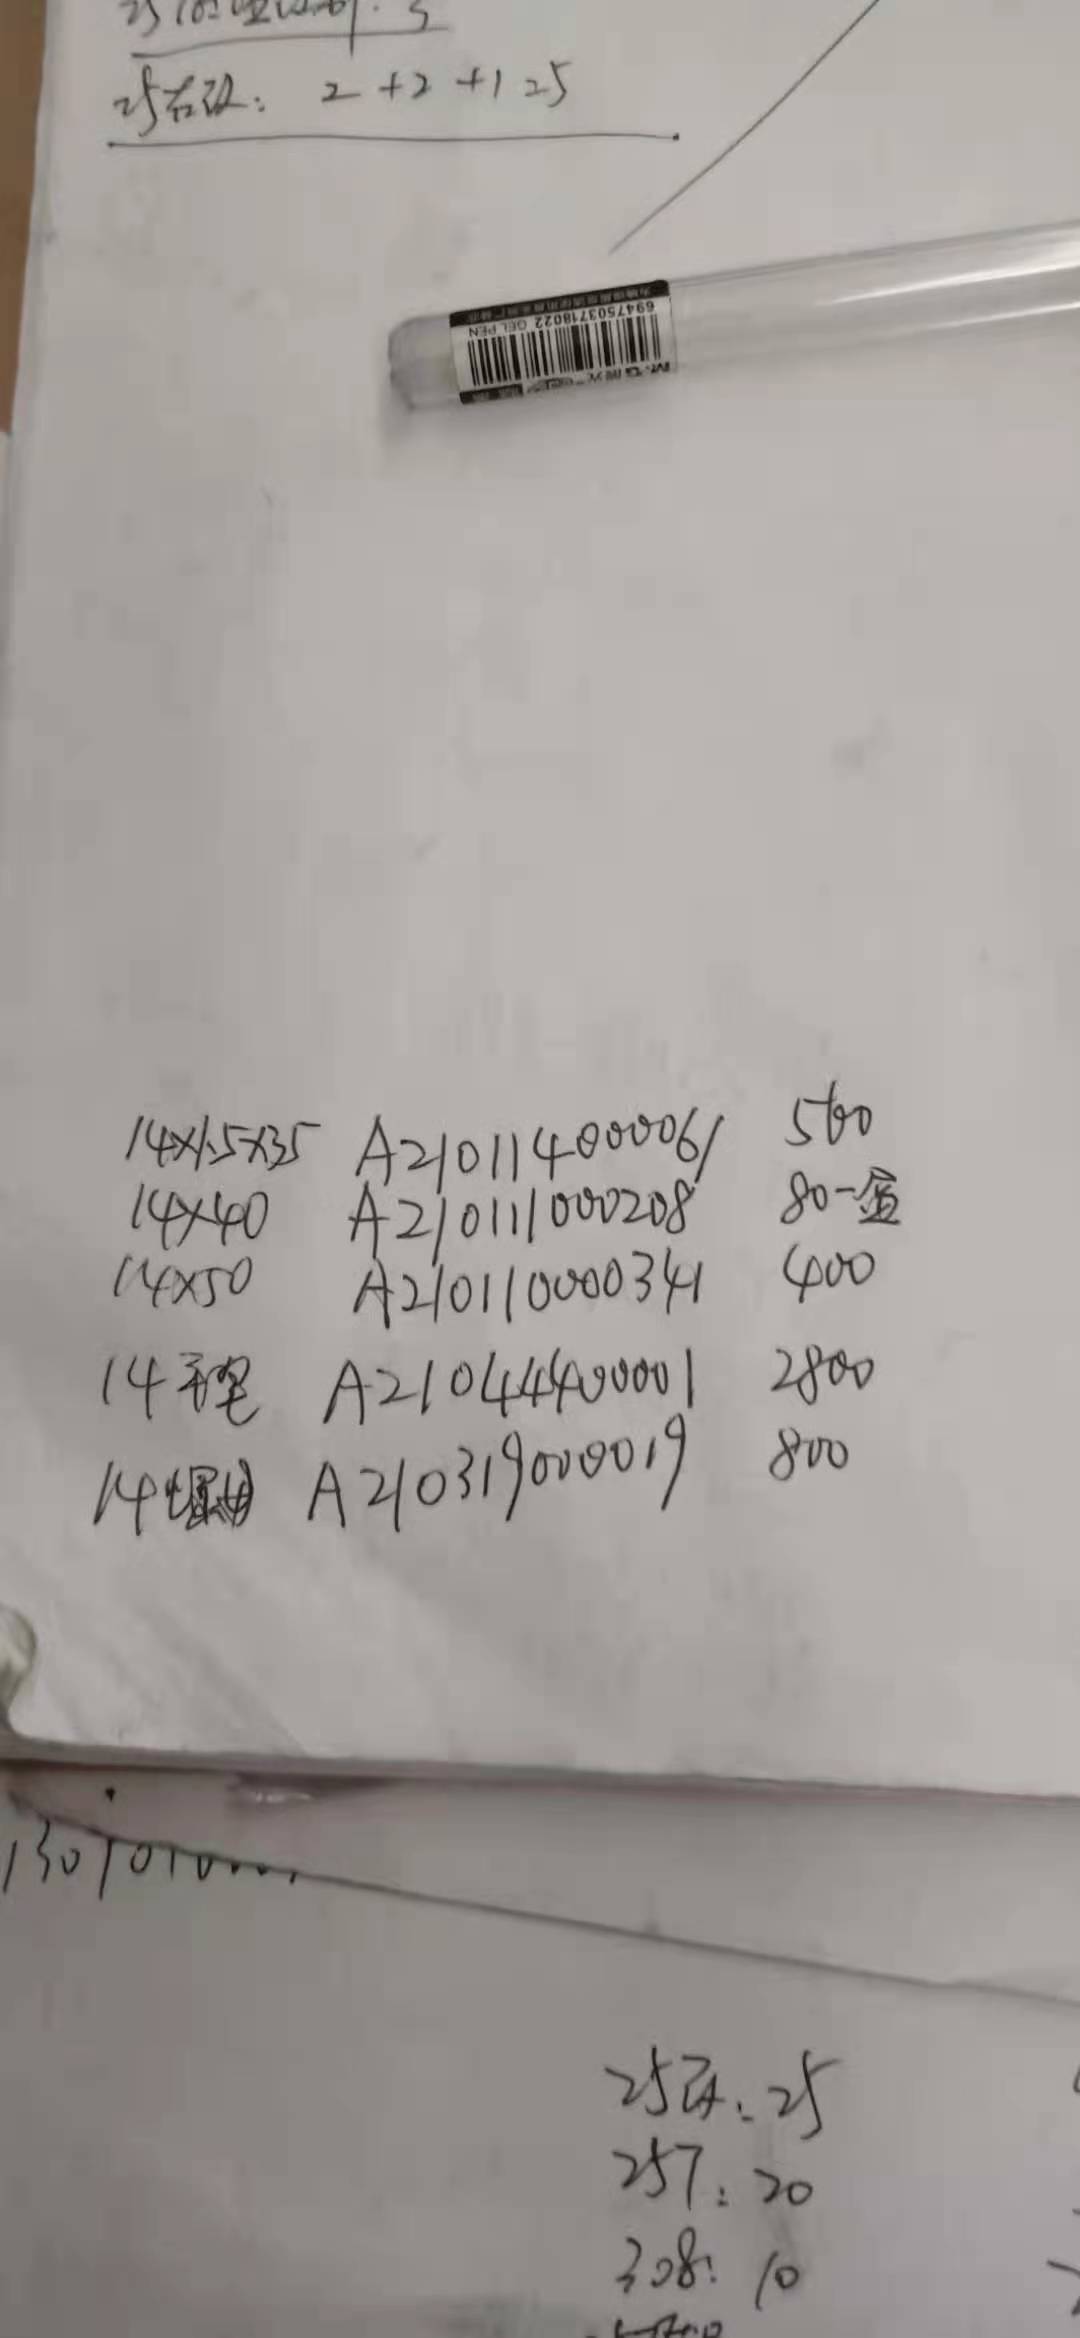 25右改: 2+2+1 25
6947503718022 GEL PEN
M&G 晨光
14×1.5×35 A210114000061 500
14×40 A210111000208 80一盒
14×50 A210110000341 400
14平垫 A21044400001 2800
14螺母 A210319000019 800
1301010
25改: 25
257: 20
308: 10